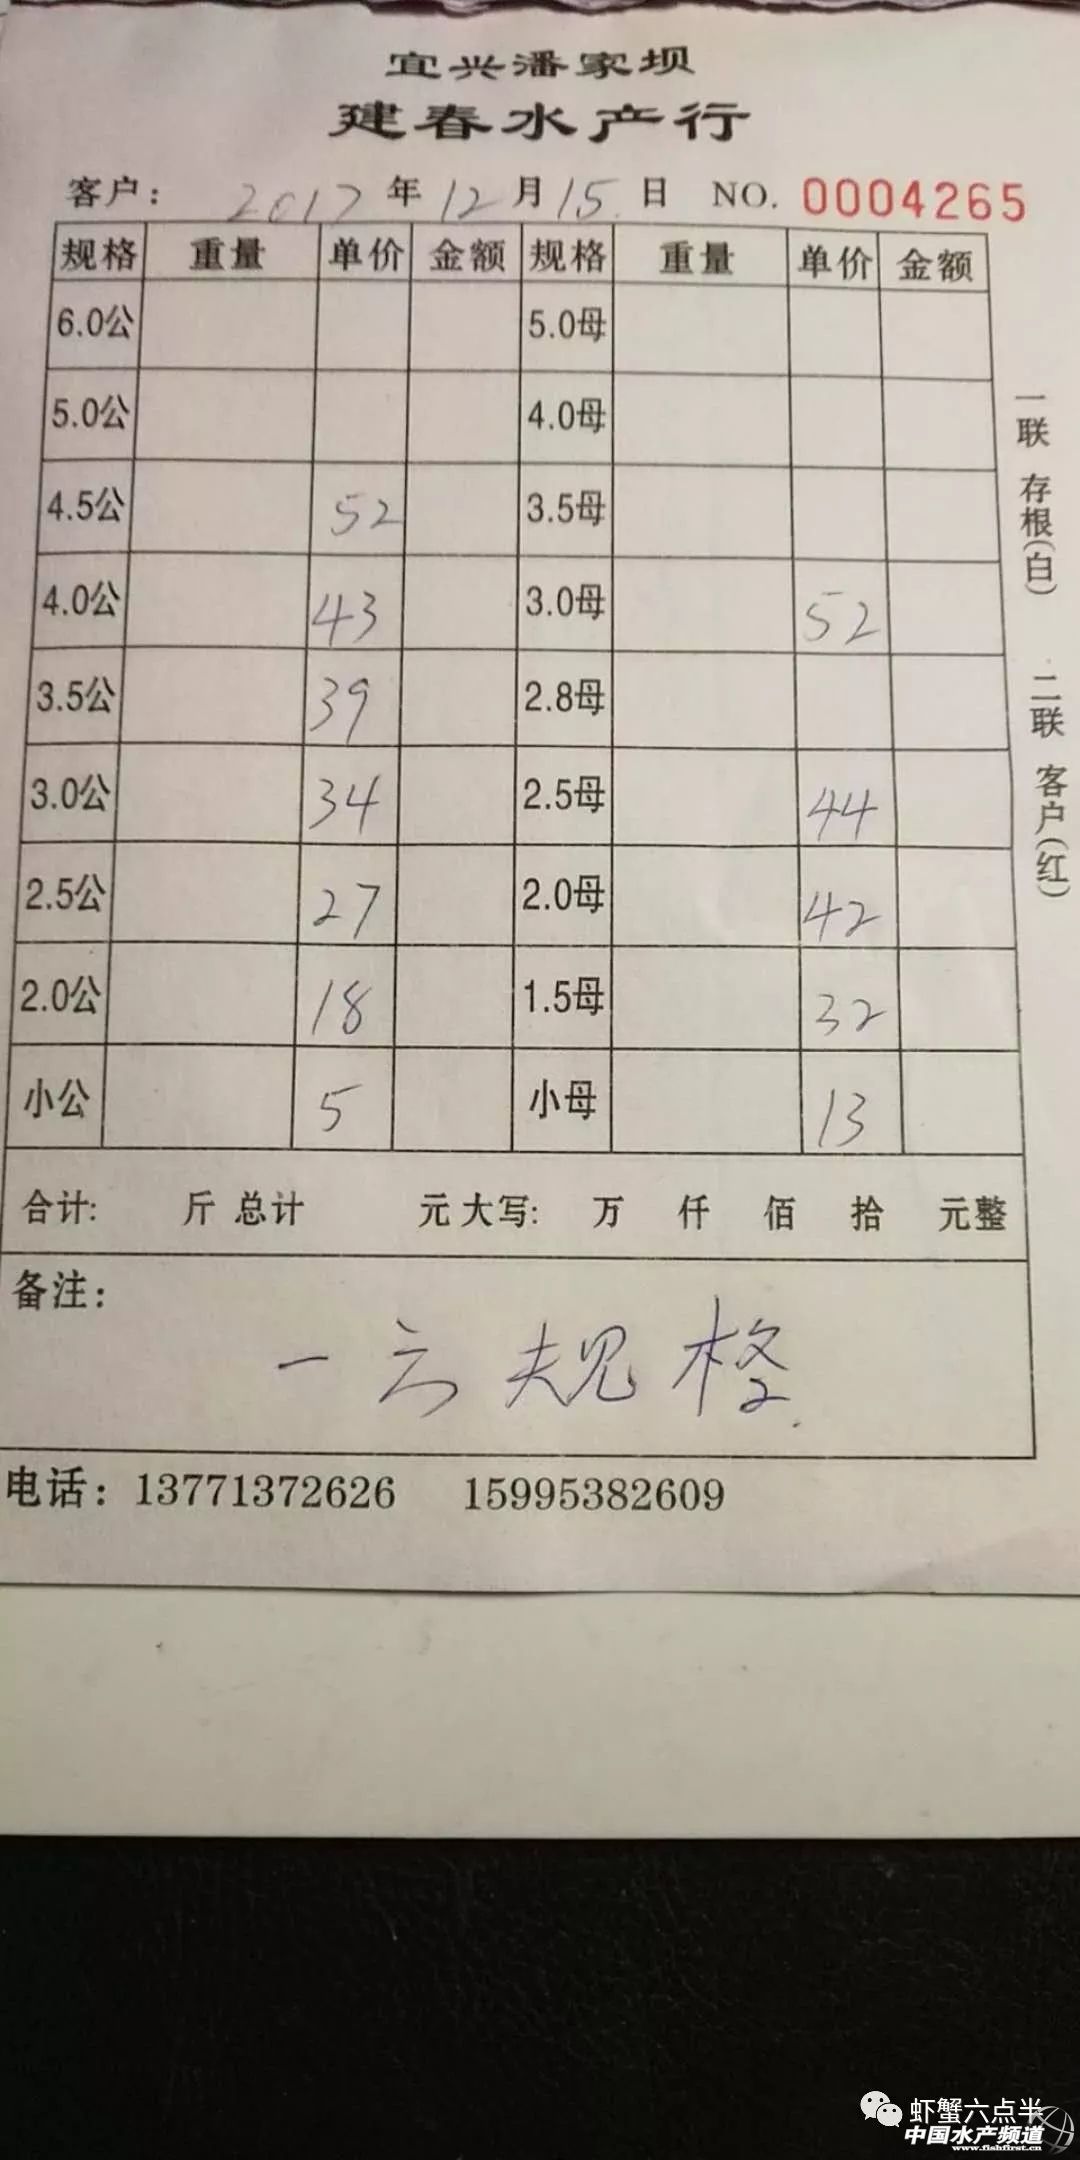 宜兴潘家坝
建春水产行
客户: 2017年12月15日 NO. 0004265
规格 重量 单价 金额 规格 重量 单价 金额
6.0公 5.0母
5.0公 4.0母
4.5公 52 3.5母
4.0公 43 3.0母 52
3.5公 39 2.8母
3.0公 34 2.5母 44
2.5公 27 2.0母 42
2.0公 18 1.5母 32
小公 5 小母 13
合计: 斤 总计 元 大写: 万 仟 佰 拾 元整
备注:
一六规格
电话: 13771372626 15995382609
一联 存根(白) 二联 客户(红)
虾蟹六点半
中国水产频道
www.fishfirst.cn